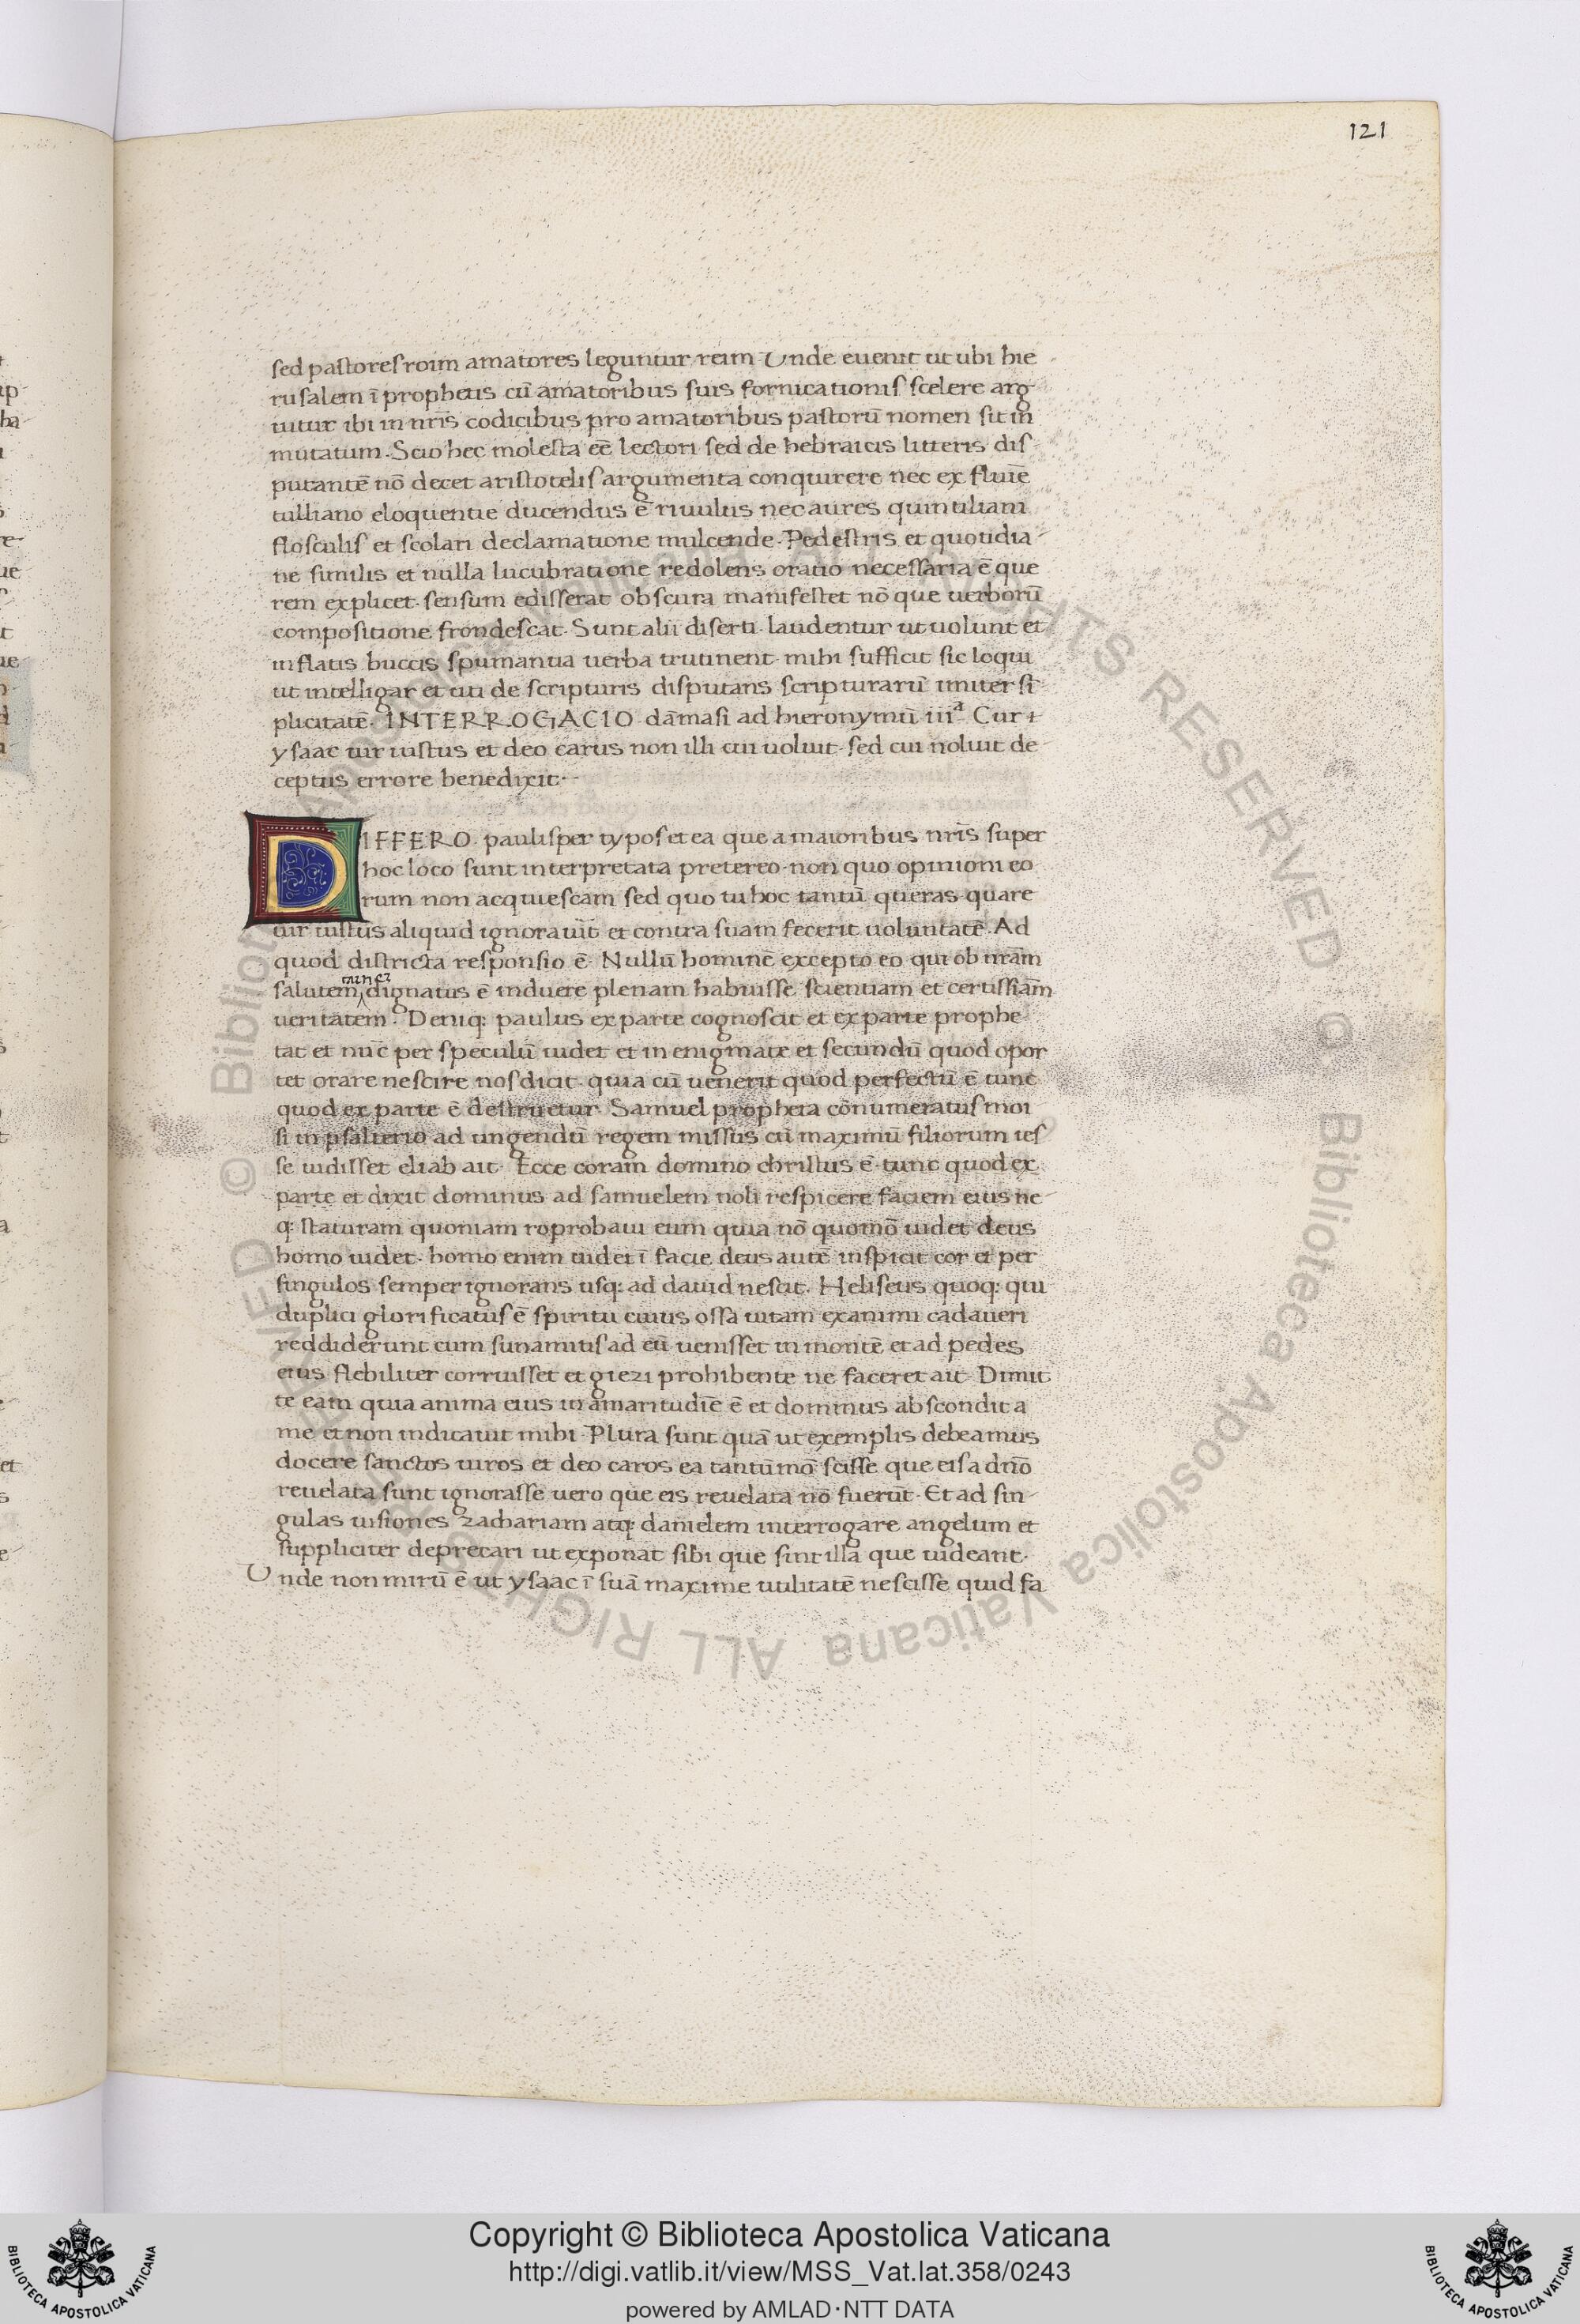 121
sed pastores roim amatores leguntur reim Unde euenit ut ubi hie
rusalem ī prophetis cū amatoribus suis fornicationis scelere arg
uitur ibi in nr̄is codicibus pro amatoribus pastorū nomen sit in
mutatum. Scio hec molesta eē lectori sed de hebraicis litteris dis
putantē nō decet aristotelis argumenta conquirere nec ex fluīe
tulliano eloquentie ducendus ē riuulus nec aures quintiliani
flosculis et scolari declamatione mulcende. Pedestris et quotidia
ne similis et nulla lucubratione redolens oratio necessaria ē que
rem explicet. sensum edisserat obscura manifestet nō que uerborū
compositione frondescat. Sunt alii diserti. laudentur ut uolunt et
inflatis buccis spumantia uerba trutinent. mihi sufficit sic loqui
ut intelligar et uti de scripturis disputans scripturarū imiter sī
plicitatē. INTERROGACIO dāmasi ad hieronymū iiiᵃ Cur
ysaac uir iustus et deo carus non illi cui uoluit. sed cui noluit de
ceptus errore benedixit.
DIFFERO. paulisper typos et ea que a maioribus nr̄is super
hoc loco sunt interpretata pretereo. non quo opinioni eo
rum non acquiescam sed quo tu hoc tantū queras. quare
uir iustus aliquid ignorauit et contra suam fecerit uoluntatē. Ad
quod districta responsio ē. Nullū hominē excepto eo qui ob nr̄am
salutem dignatus ē induere plenam habuisse scientiam et certissiām
ueritatem. Deniq: paulus ex parte cognoscit et ex parte prophe
tat et nūc per speculū uidet et in enigmate et secundū quod opor
tet orare nescire nos dicit. quia cū uenerit quod perfectū ē tunc
quod ex parte ē destruetur. Samuel propheta cōnumeratus moi
si in psalterio ad ungendū regem missus cū maximū filiorum ies
se uidisset eliab ait. Ecce coram domino christus ē. tunc quod ex
parte et dixit dominus ad samuelem noli respicere faciem eius ne
q: staturam quoniam roprobaui eum quia nō quomō uidet deus
homo uidet. homo enim uidet ī facie deus autē inspicit cor et per
singulos semper ignorans usq: ad dauid nescit. Heliseus quoq: qui
duplici glorificatus ē spiritu cuius ossa uitam exanimi cadaueri
reddiderunt cum sunamitis ad eū uenisset in montē et ad pedes
eius flebiliter corruisset et giezi prohibente ne faceret ait. Dimit
te eam quia anima eius in amaritudīe ē et dominus abscondit a
me et non indicauit mihi. Plura sunt quā ut exemplis debeamus
docere sanctos uiros et deo caros ea tantūmō scisse que eis a dn̄o
reuelata sunt ignorasse uero que eis reuelata nō fuerūt. Et ad sin
gulas uisiones zachariam atq: danielem interrogare angelum et
suppliciter deprecari ut exponat sibi que sint illa que uideant.
Unde non mirū ē ut ysaac ī suā maxime utilitatē nescisse quid fa
© Biblioteca Apostolica Vaticana ALL RIGHTS RESERVED © Biblioteca Apostolica Vaticana ALL RIGHTS RESERVED
Copyright © Biblioteca Apostolica Vaticana
http://digi.vatlib.it/view/MSS_Vat.lat.358/0243
powered by AMLAD·NTT DATA
BIBLIOTECA APOSTOLICA VATICANA
BIBLIOTECA APOSTOLICA VATICANA